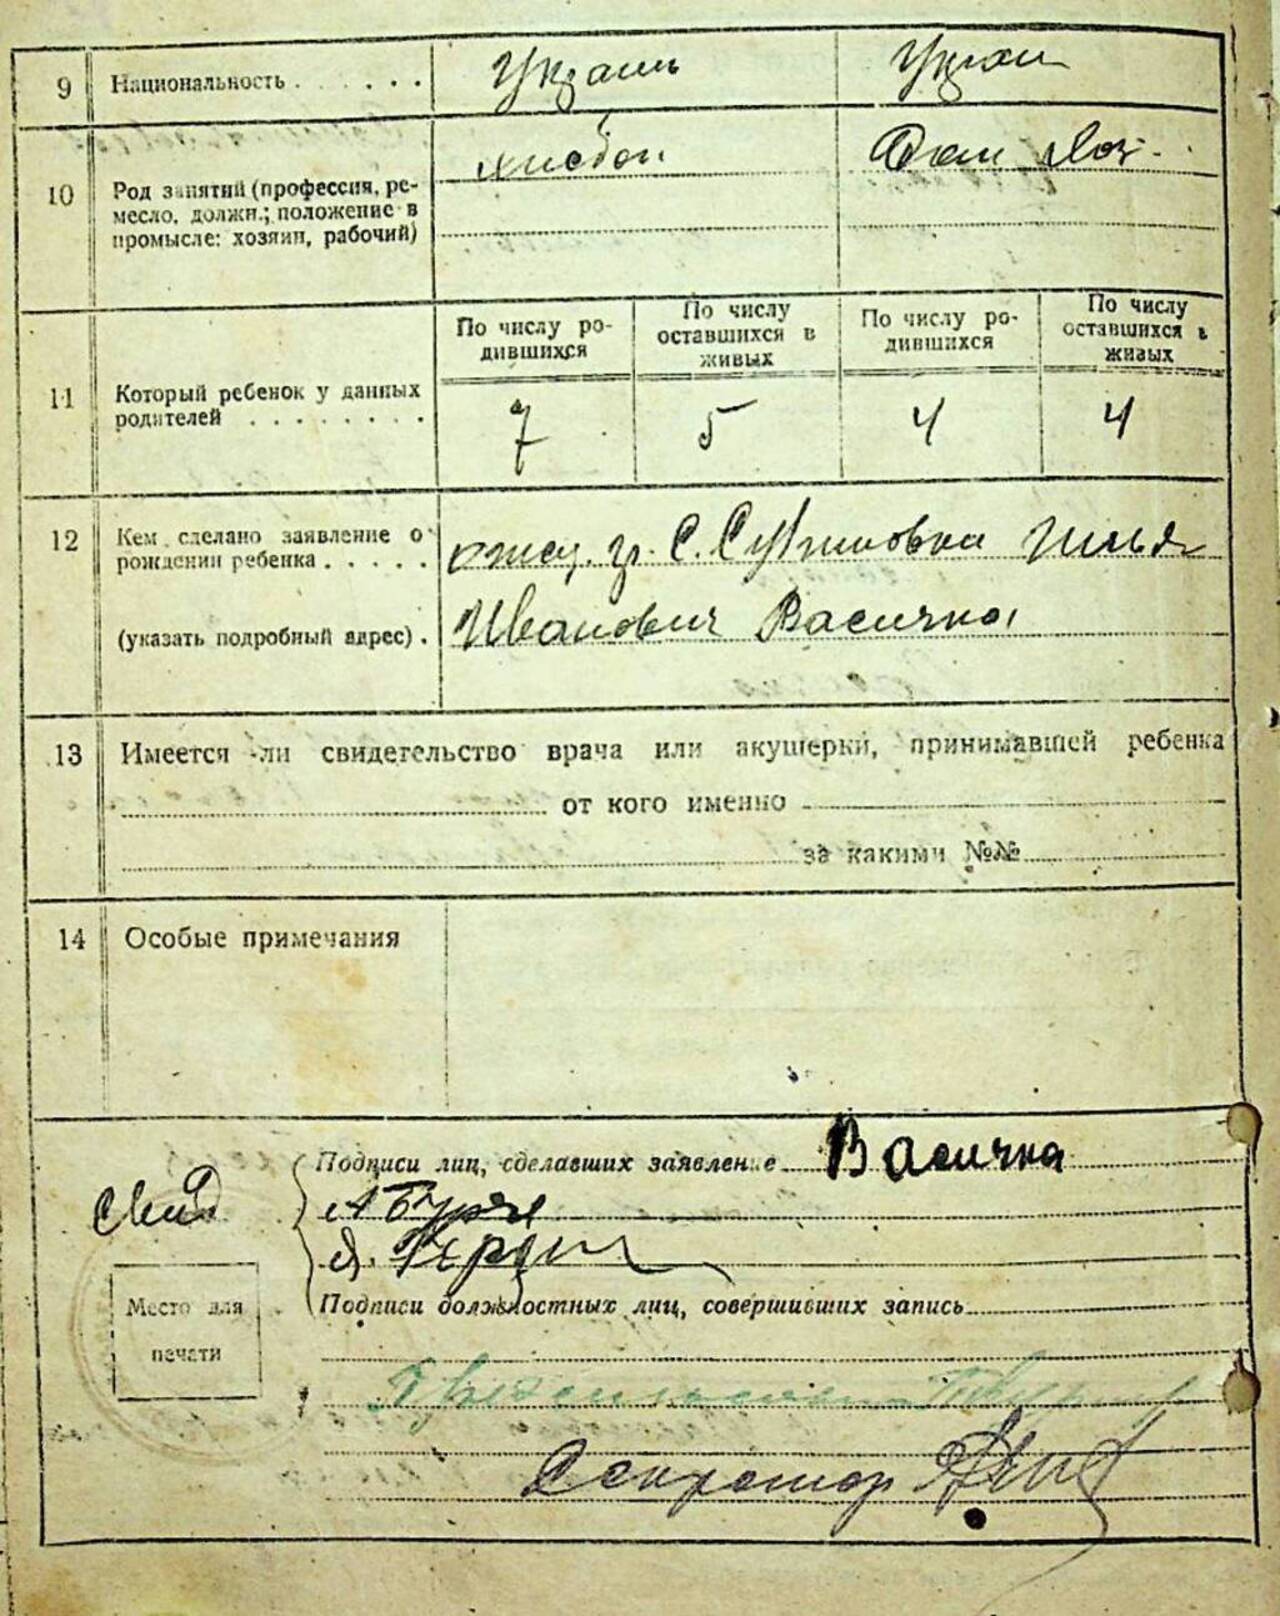 9 Национальность . . . . . . Украин Украин
10 Род занятий (профессия, ре-
месло, должн.; положение в
промысле: хозяин, рабочий)
хлебоп. Дом Хоз.
11 Который ребенок у данных
родителей . . . . . . . .
По числу ро-
дившихся
По числу
оставшихся в
живых
По числу ро-
дившихся
По числу
оставшихся в
живых
7 5 4 4
12 Кем сделано заявление о
рождении ребенка . . . . .
(указать подробный адрес) .
отец. гр. С. Илья
Иванович Васичка
13 Имеется ли свидетельство врача или акушерки, принимавшей ребенка
от кого именно
за какими №№
14 Особые примечания
Подписи лиц, сделавших заявление Васичка
Свид
Место для
печати
Подписи должностных лиц, совершивших запись
Секретарь